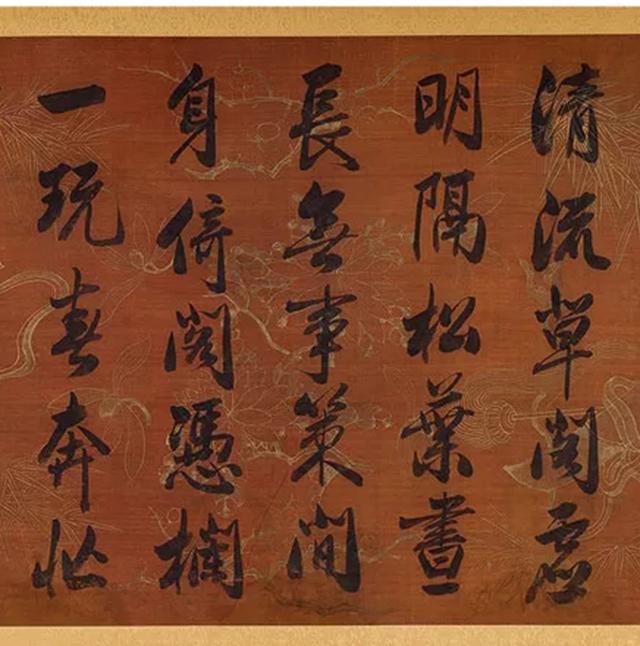 清流草閣虛
明隔松葉晝
長無事策閒
身倚閣憑欄
一玩春奔忙